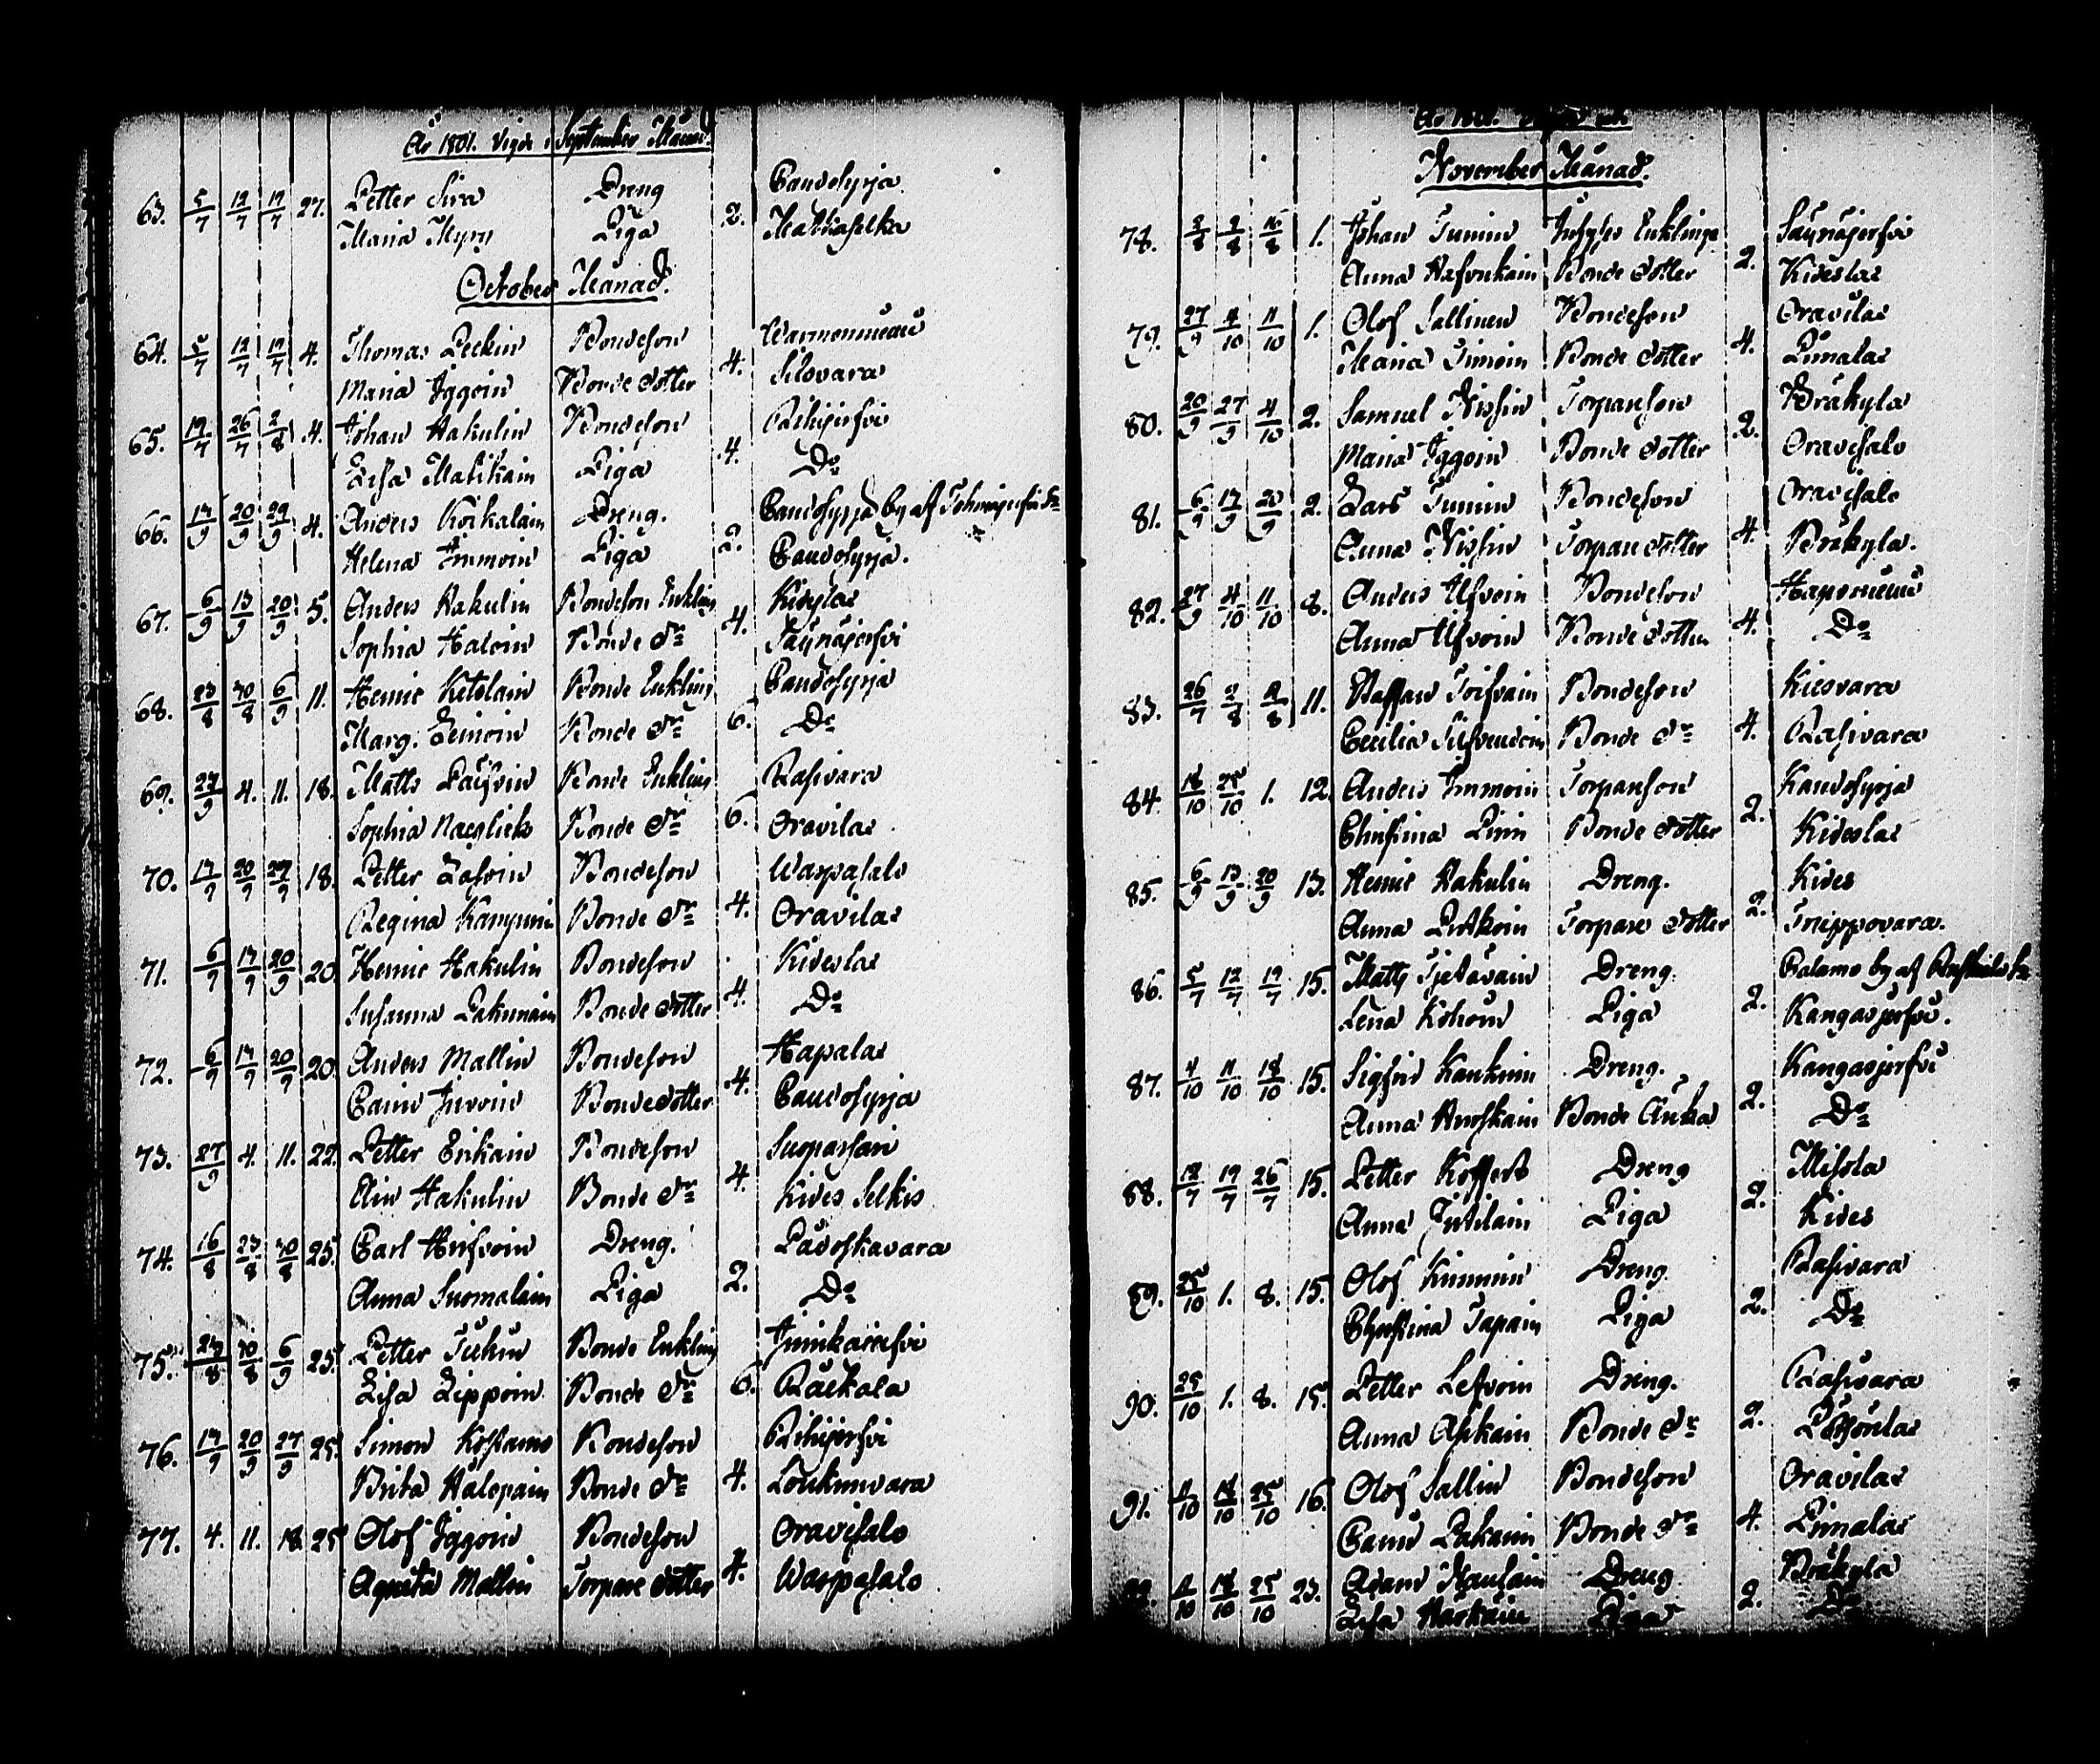 År 1801. Vigde i September Månad.
63. 5/7 12/7 19/7 27. Petter Sira Dreng 2. Caudosyrja
Maria Myry Piga Matkaselka
October Månad.
64. 5/7 12/7 19/7 4. Thomas Peckin Bondeson 4. Warmonniemi
Maria Iggoin Bonde Dotter Silovara
65. 19/7 26/7 2/8 4. Johan Hakulin Bondeson 4. Rihijerfvi
Lisa Matikain Piga Do
66. 13/9 20/9 29/9 4. Anders Koikalain Dreng. 2. Caudosyrja by af Tohmajerfvi Sn
Helena Immoin Piga Caudosyrja.
67. 6/9 13/9 20/9 5. Anders Hakulin Bondeson Enkling 4. Kideslax
Sophia Haloin Bonde Dr Säynäjerfvi
68. 23/8 30/8 6/9 11. Henric Ketolain Bonde Enkling 6. Caudosyrja
Marg. Leinoin Bonde Dr Do
69. 27/9 4. 11. 18. Matts Päifvin Bonde Enkling 6. Rasivara
Sophia Naeglick Bonde Dr Oravilax
70. 13/9 20/9 27/9 18. Petter Lasoin Bondeson 4. Waspasalo
Regina Kampuin Bonde Dr Oravilax
71. 6/9 13/9 20/9 20. Henric Hakulin Bondeson 4. Kideslax
Susanna Pakunain Bonde Dotter Do
72. 6/9 13/9 20/9 20. Anders Mallin Bondeson 4. Hapalax
Carin Juvoin Bonde Dotter Caudosyrja
73. 27/9 4. 11. 22. Petter Erikain Bondeson 4. Suoparsari
Elin Hakulin Bonde Dr Kides Selkis
74. 16/8 23/8 30/8 25. Carl Hirfvoin Dreng. 2. Pådoskavara
Anna Suomalain Piga Do
75. 23/8 30/8 6/9 25. Petter Tiikin Bonde Enkling 6. Juurikaierfvi
Lisa Lippoin Bonde Dr Räckala
76. 13/9 20/9 27/9 25. Simon Kostamo Bondeson 4. Rihijerfvi
Brita Hälepain Bonde Dr Loukunvara
77. 4. 11. 18. 25. Olof Iggoin Bondeson 4. Oravisalo
Agneta Mallin Torpare Dotter Waspasalo
År 1801.
November Månad.
78. 2/8 9/8 16/8 1. Johan Turuin Inhyses Enklinge 2. Säynäjerfvi
Anna Hafvukain Bonde Dotter Kideslax
79. 27/9 4/10 11/10 1. Olof Sallinen Bondeson 4. Oravilax
Maria Simoin Bonde Dotter Pimalax
80. 20/9 27/9 4/10 2. Samuel Nissin Torpareson 2. Bråkyla
Maria Iggoin Bonde Dotter Oravisalo
81. 6/9 13/9 20/9 2. Lars Turuin Bondeson 4. Oravisalo
Anna Nissin Torpare Dotter Bråkyla.
82. 27/9 4/10 11/10 8. Anders Ulfvoin Bondeson 4. Haponiemi
Anna Ulfvoin Bonde Dotter Do
83. 26/7 2/8 9/8 11. Staffan Toifvain Bondeson 4. Kiesvara
Cecilia Silfvendoin Bonde Dr Rasivara
84. 18/10 25/10 1. 12. Anders Immoin Torpareson 2. Kaudosyrja
Christina Pirin Bonde Dotter Kideslax
85. 6/9 13/9 20/9 13. Henric Hakulin Dreng. 2. Kides
Anna Putkoin Torpare Dotter Tneppovara.
86. 5/7 12/7 19/7 15. Matts Tjetävain Dreng. 2. Palamo by af Ruskiala Sn
Lena Kohoin Piga Kangasjerfvi.
87. 4/10 11/10 18/10 15. Sigfrid Kaukuin Dreng. 2. Kangasjerfvi
Anna Huoskain Bonde Änka Do
88. 12/7 19/7 26/7 15. Petter Koffert Dreng 2. Misola
Anna Jutilain Piga Kides
89. 25/10 1. 8. 15. Olof Kinnuin Dreng. 2. Rasivara
Christina Tapain Piga Do
90. 25/10 1. 8. 15. Petter Lefvoin Dreng. 2. Rasivara
Anna Askain Bonde Dr
91. 11/10 18/10 25/10 16. Olof Sallin Bondeson 4. Oravilax
Carin Pakarin Bonde Dr Pimalax
92. 11/10 18/10 25/10 23. Adam Dreng 2. Bråkyla
Lisa Piga Do